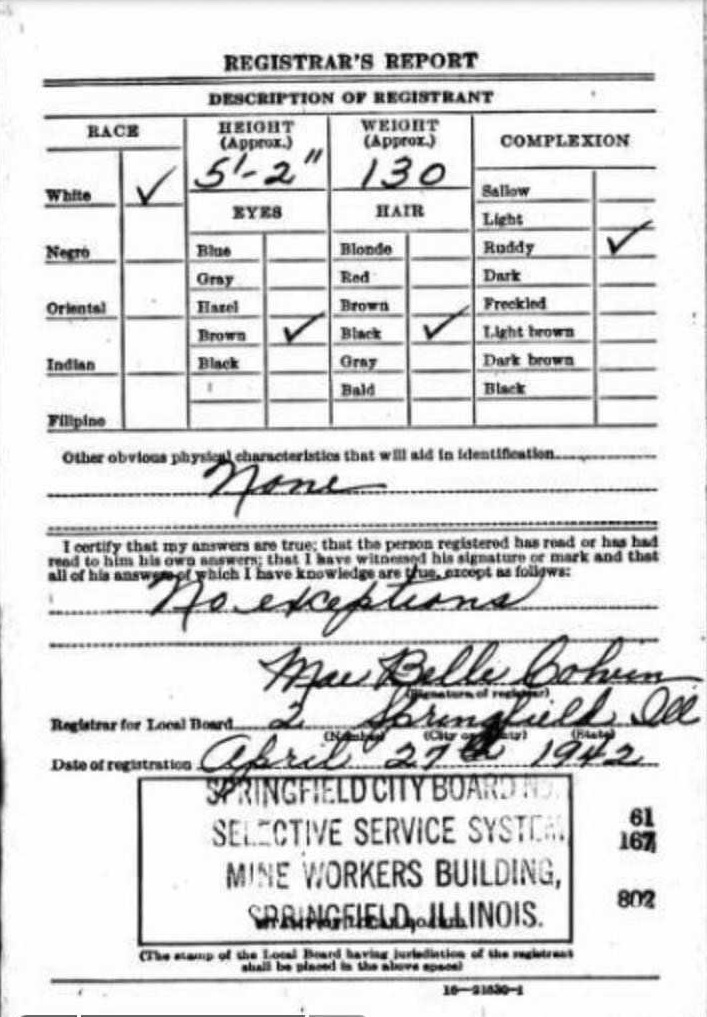 REGISTRAR'S REPORT
DESCRIPTION OF REGISTRANT
RACE
HEIGHT (Approx.)
WEIGHT (Approx.)
COMPLEXION
5'-2"
130
White ✓
EYES
HAIR
Sallow
Light
Negro
Blue
Blonde
Ruddy ✓
Gray
Red
Dark
Oriental
Hazel
Brown
Freckled
Brown ✓
Black ✓
Light brown
Indian
Black
Gray
Dark brown
Bald
Black
Filipino
Other obvious physical characteristics that will aid in identification
None
I certify that my answers are true; that the person registered has read or has had
read to him his own answers; that I have witnessed his signature or mark and that
all of his answers of which I have knowledge are true, except as follows:
No exceptions
Mae Belle Colvin
(Signature of registrar)
Registrar for Local Board 2 Springfield Ill
(Number) (City or county) (State)
Date of registration April 27th 1942
SPRINGFIELD CITY BOARD NO.
SELECTIVE SERVICE SYSTEM,
MINE WORKERS BUILDING,
SPRINGFIELD, ILLINOIS.
61
167
802
(The stamp of the Local Board having jurisdiction of the registrant
shall be placed in the above space)
16—21630-1